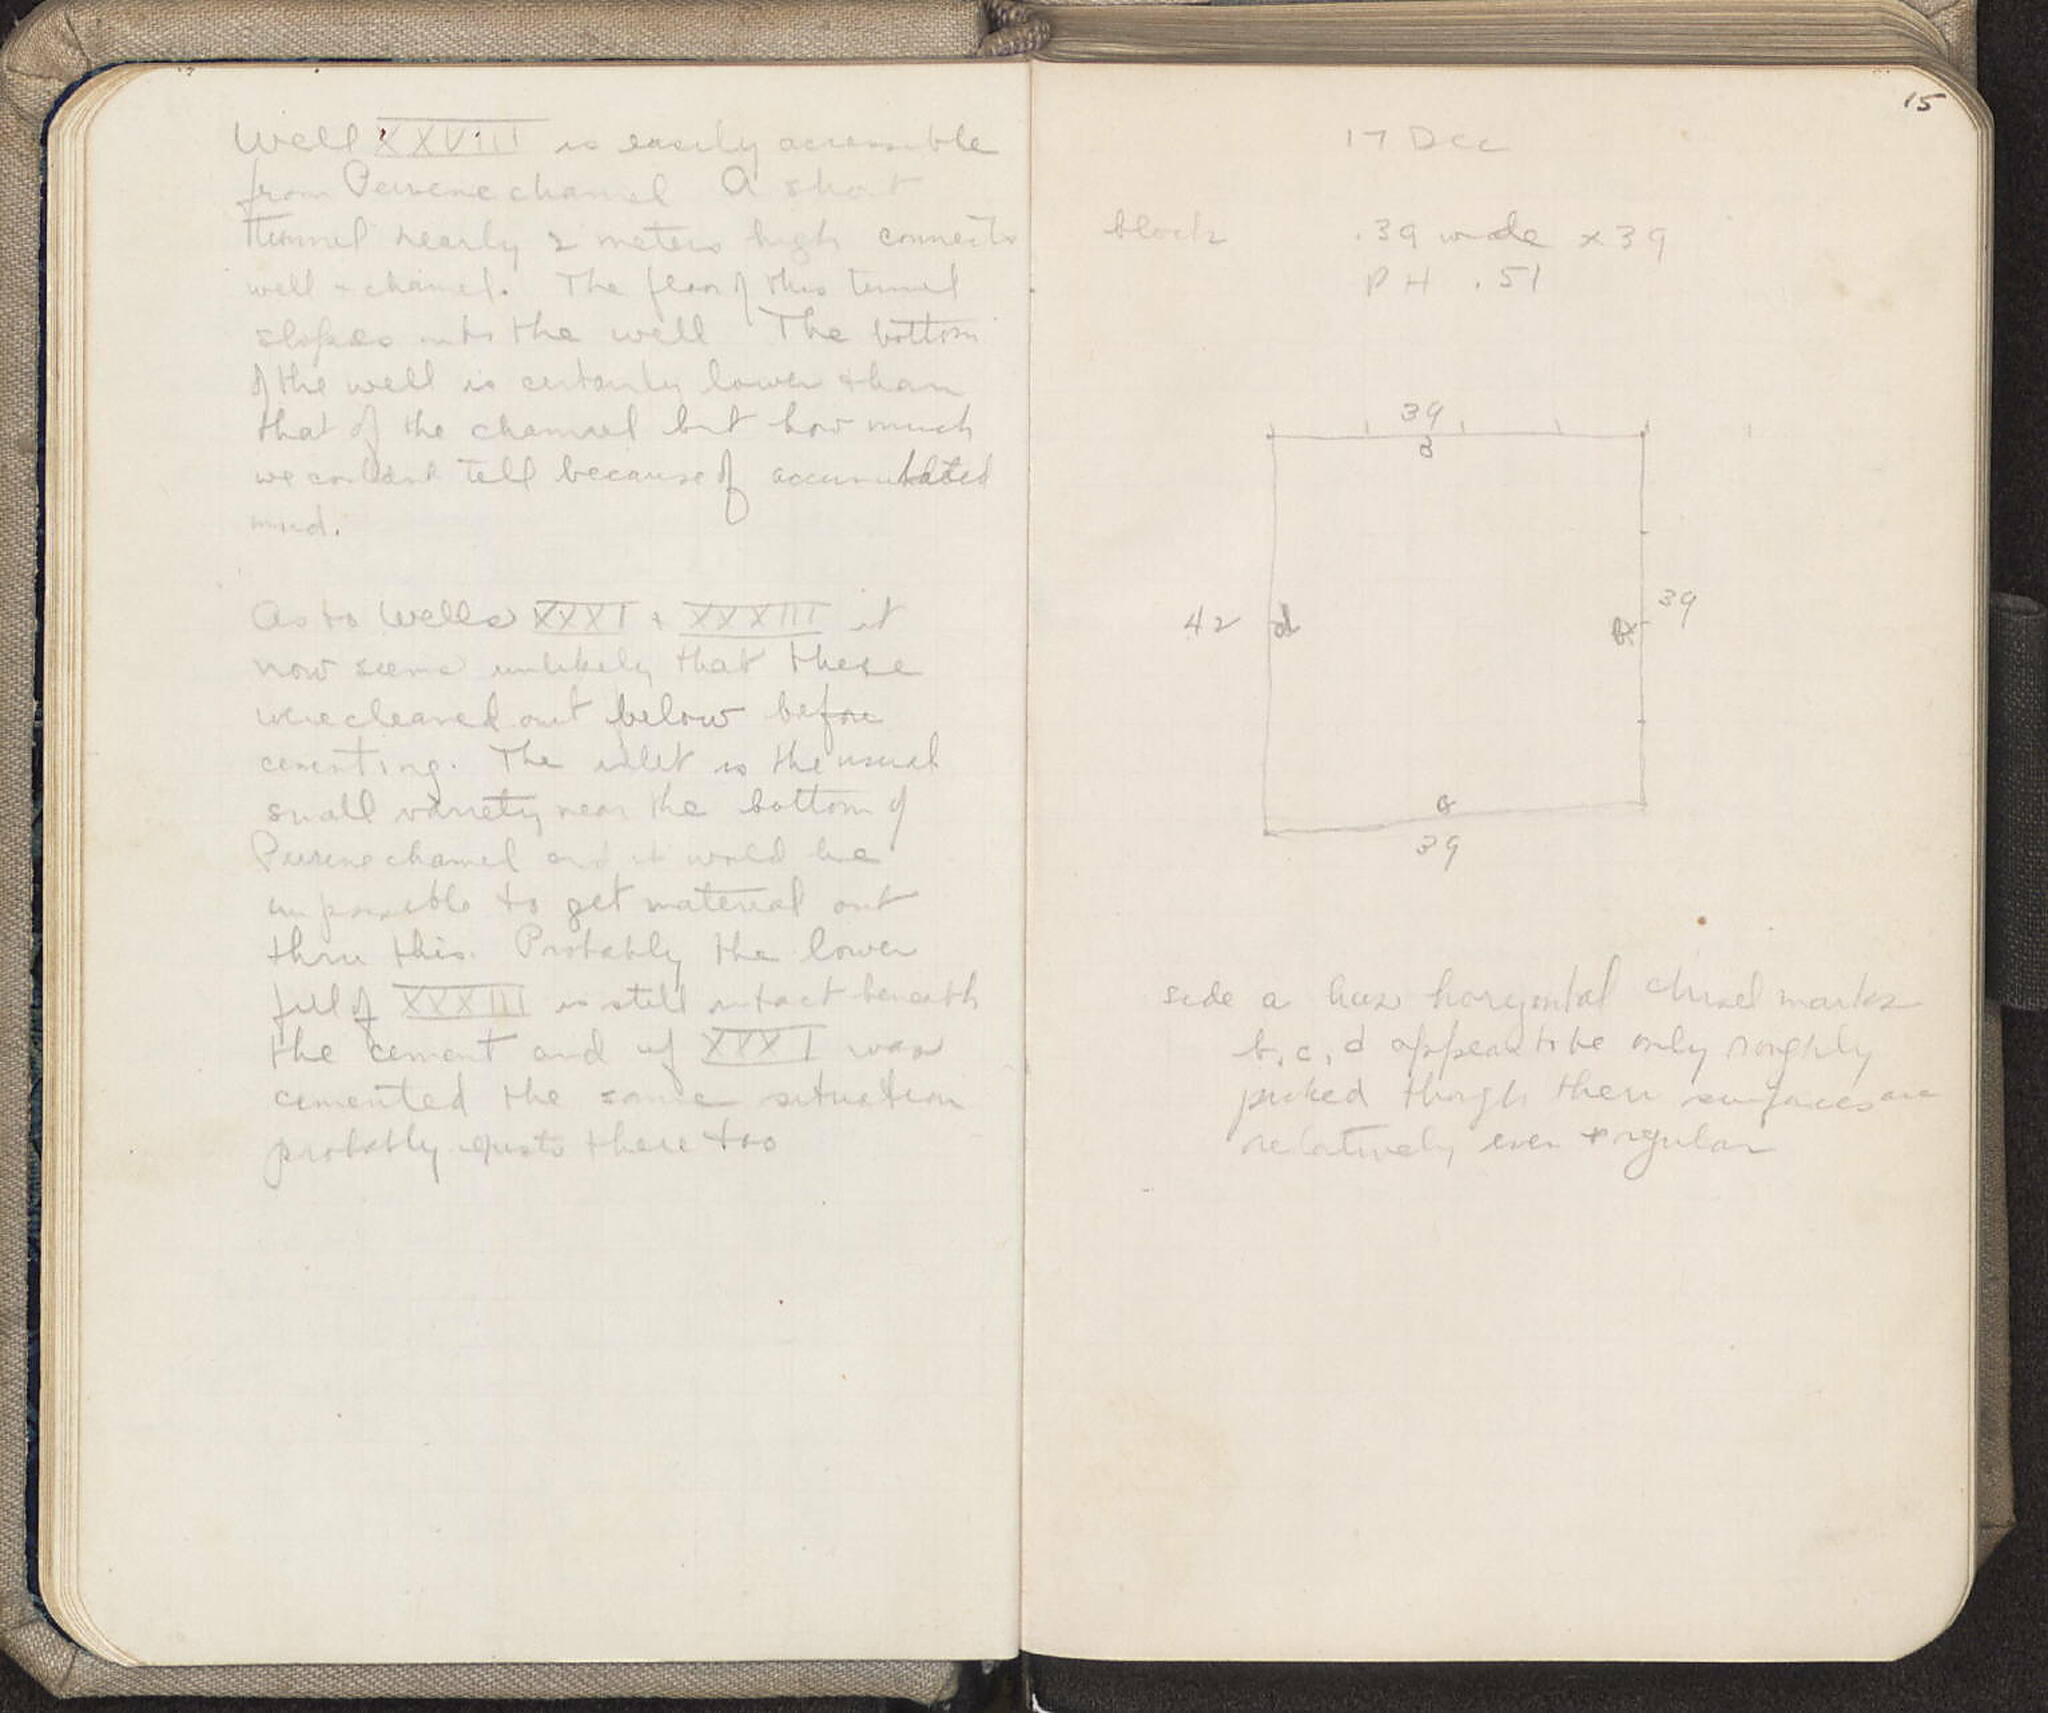 Well XXVIII is easily accessible
from Peirene channel A short
tunnel nearly 2 meters high connects
well + channel. The floor of this tunnel
slopes into the well The bottom
of the well is certainly lower than
that of the channel but how much
we couldn't tell because of accumulated
mud.
As to Wells XXXI + XXXIII it
now seems unlikely that these
were cleared out below before
cementing. The inlet is the usual
small variety near the bottom of
Peirene channel and it would be
impossible to get material out
thru this. Probably the lower
fill of XXXIII is still intact beneath
the cement and if XXXI was
cemented the same situation
probably exists there too
15
17 Dec
block .39 wide x 39
PH .51
39
42 d
39
a
39
side a has horizontal chisel marks
b, c, d appear to be only roughly
picked though their surfaces are
relatively even + regular